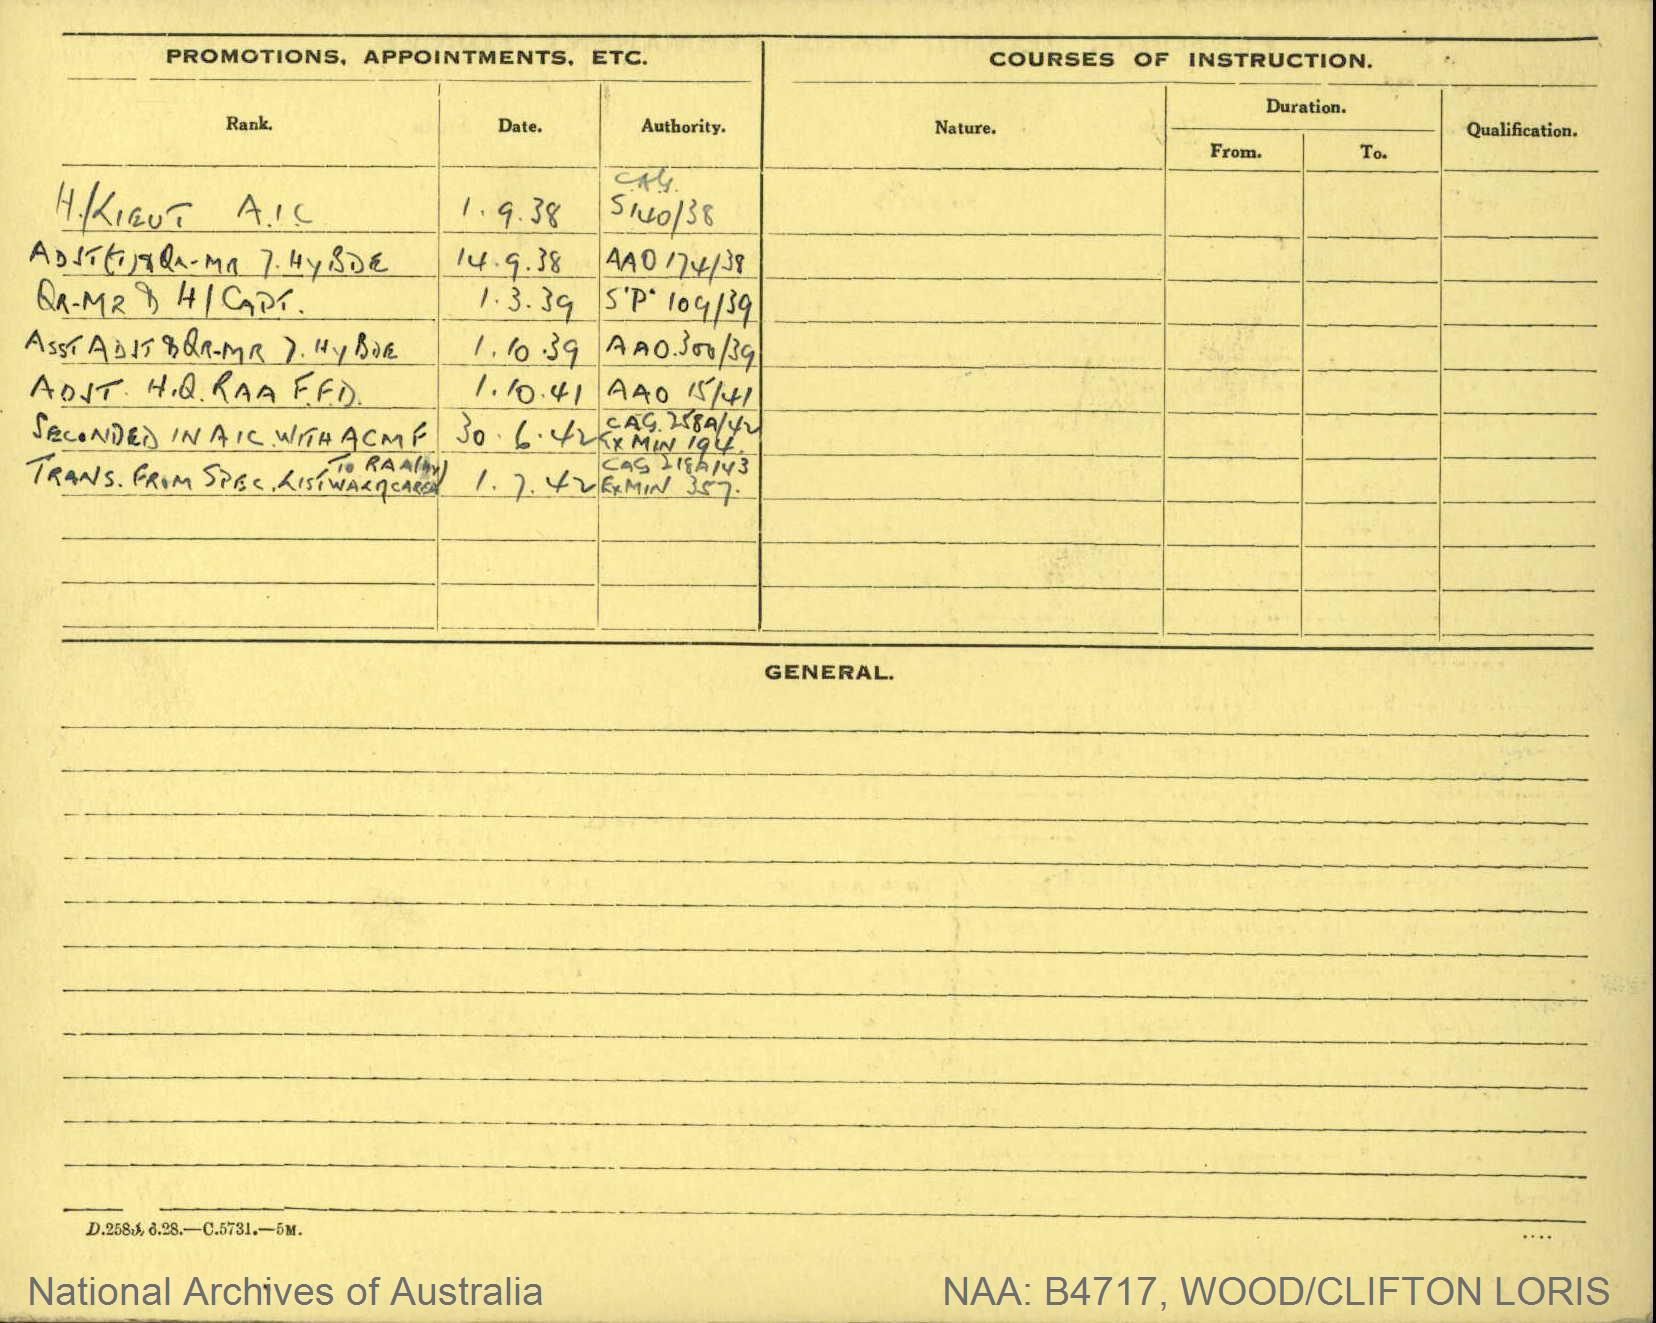 PROMOTIONS, APPOINTMENTS, ETC.
COURSES OF INSTRUCTION.
Rank.
Date.
Authority.
Nature.
Duration.
From.
To.
Qualification.
C.A.G.
H./LIEUT A.I.C 1.9.38 S140/38
ADJT(T) & QR-MR 7. HY BDE 14.9.38 AAO 174/38
QR-MR & H/CAPT. 1.3.39 S'P' 109/39
ASST ADJT & QR-MR 7. HY BDE 1.10.39 AAO.300/39
ADJT. H.Q. RAA F.F.D. 1.10.41 AAO 15/41
SECONDED IN AIC WITH ACMF 30.6.42 CAG. 258A/42
EX MIN 194.
TO RAA CAG 218A/43
TRANS. FROM SPEC. LIST 1.7.42 EXMIN 357.
GENERAL.
C.5731.—5M.
National Archives of Australia
NAA: B4717, WOOD/CLIFTON LORIS